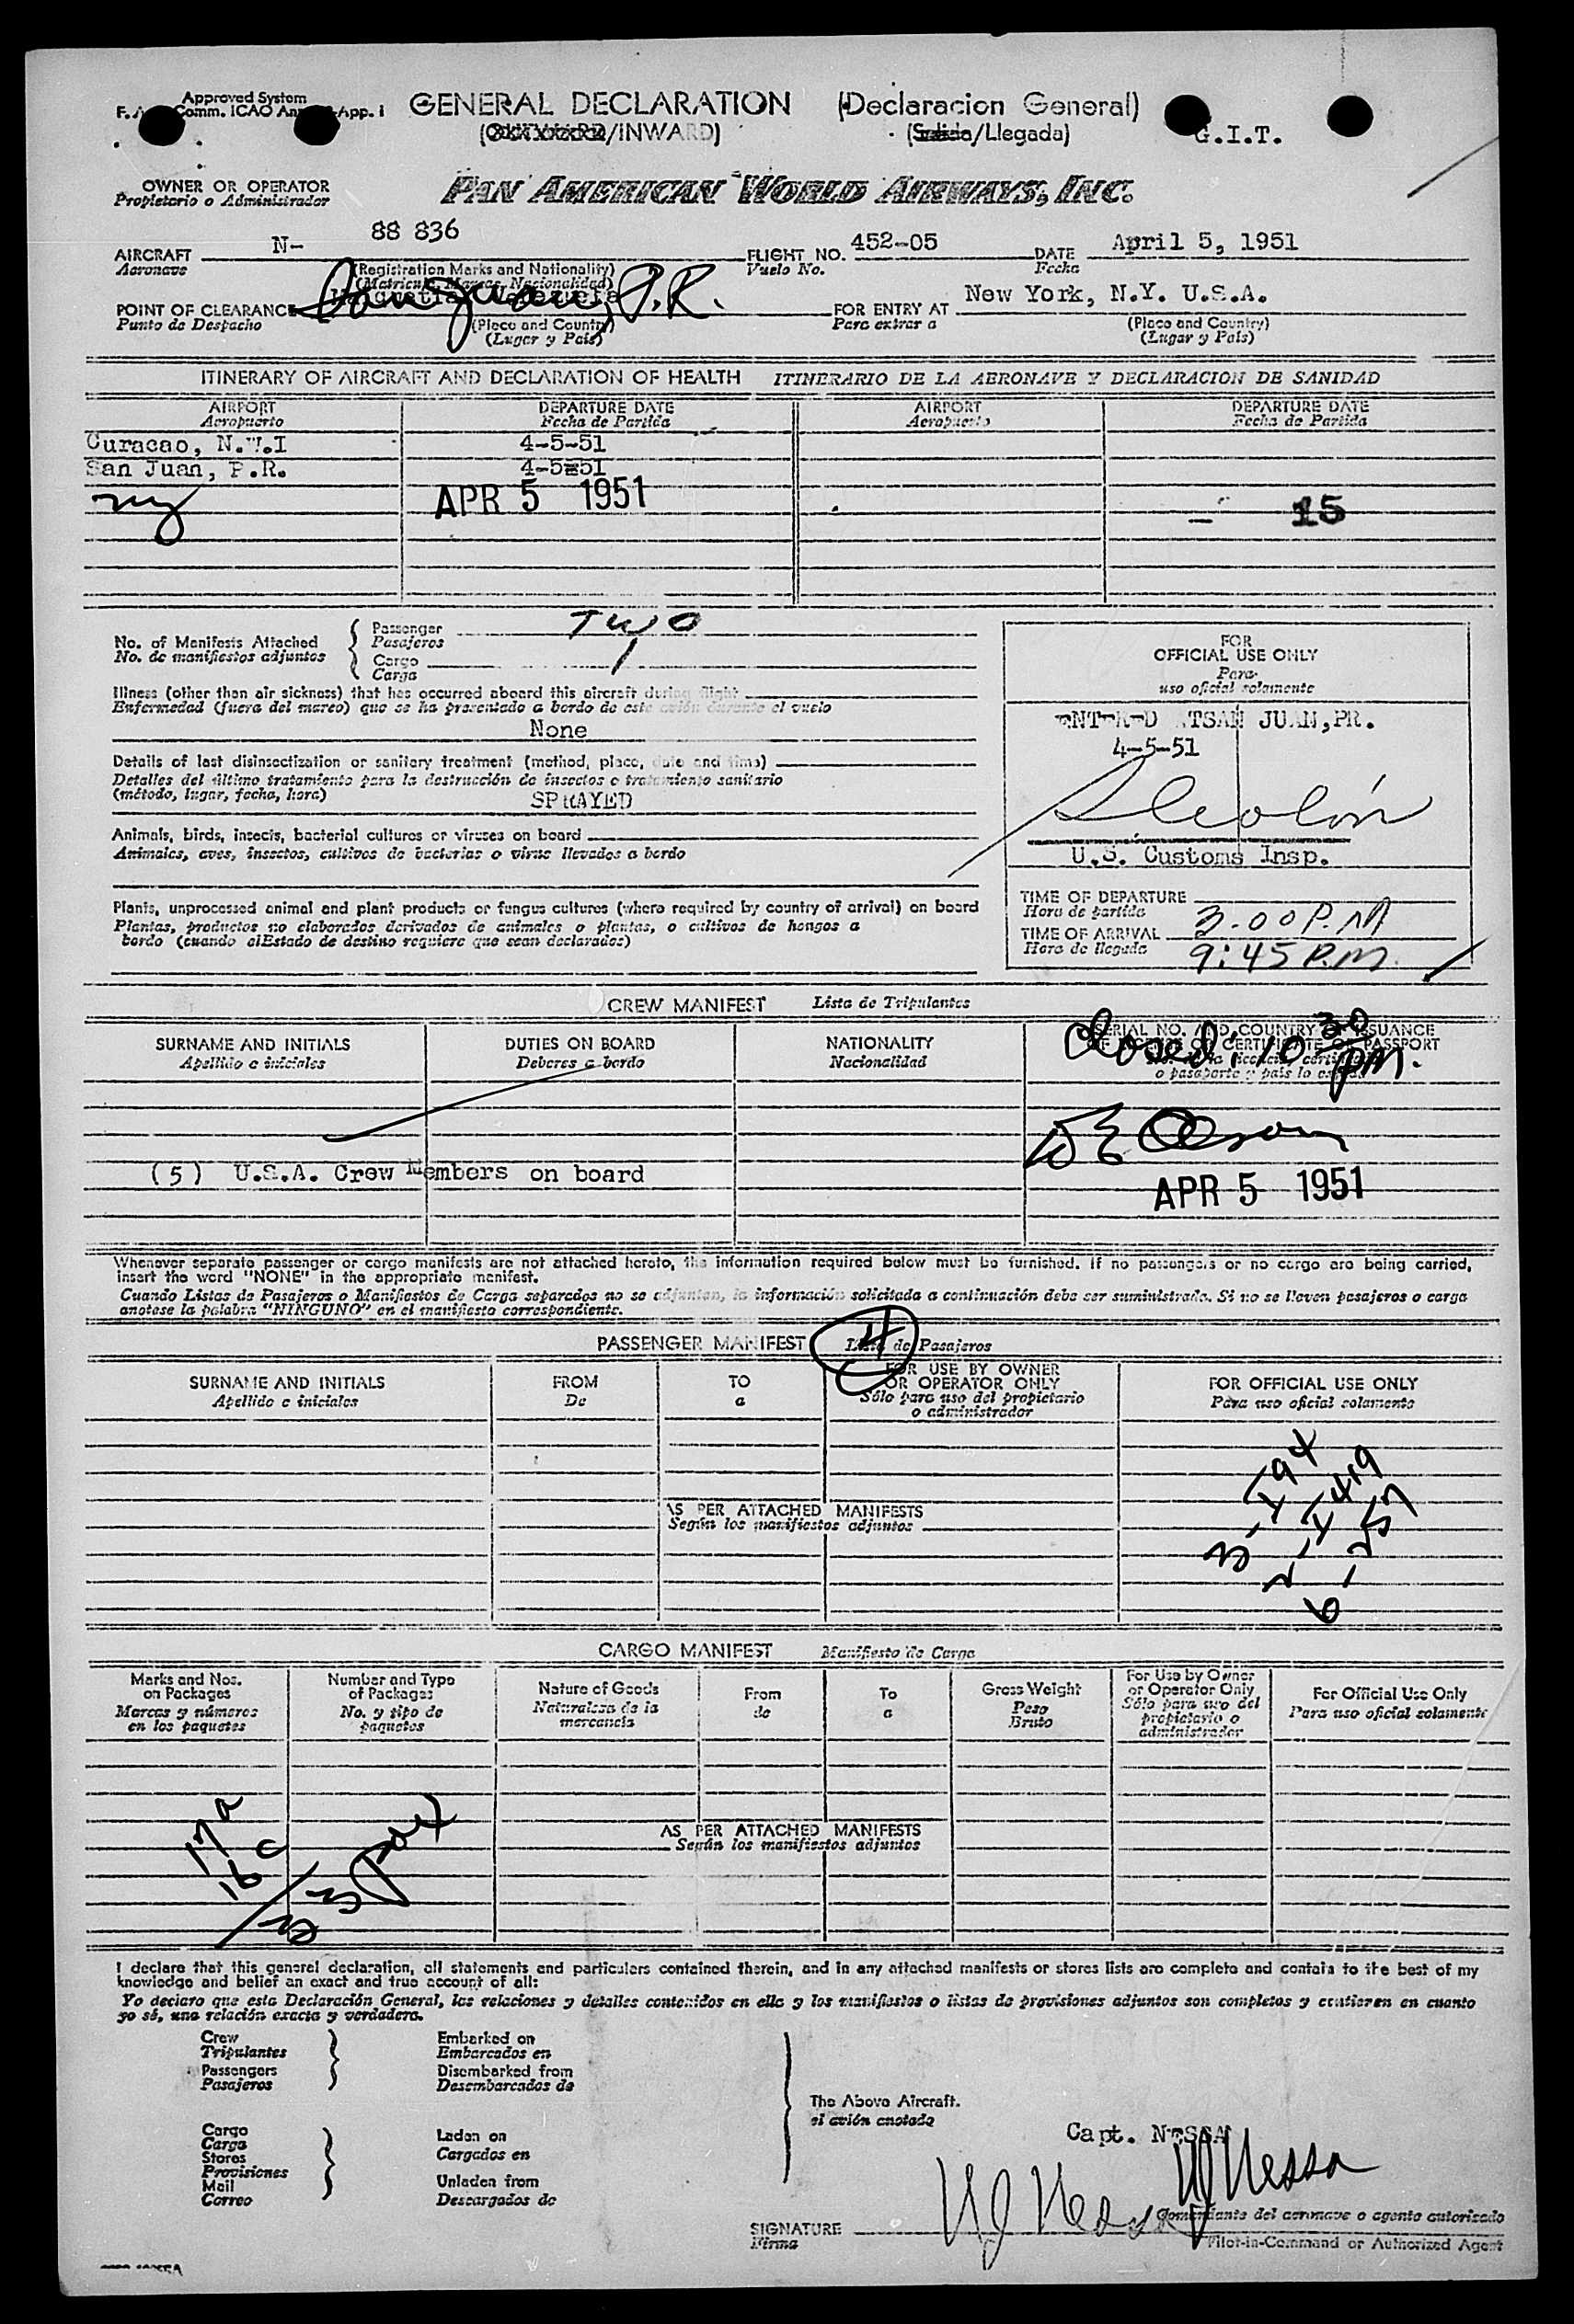 Approved System
Comm. ICAO App. I
GENERAL DECLARATION (Declaracion General)
/INWARD) /Llegada)
G.I.T.
OWNER OR OPERATOR
Propietario o Administrador
PAN AMERICAN WORLD AIRWAYS, INC.
AIRCRAFT N- 88 836 FLIGHT NO. 452-05 DATE April 5, 1951
Aeronave (Registration Marks and Nationality) Vuelo No. Fecha
POINT OF CLEARANCE San Juan, P.R. FOR ENTRY AT New York, N.Y. U.S.A.
Punto de Despacho (Place and Country) Para entrar a (Place and Country)
(Lugar y País) (Lugar y País)
ITINERARY OF AIRCRAFT AND DECLARATION OF HEALTH ITINERARIO DE LA AERONAVE Y DECLARACION DE SANIDAD
AIRPORT DEPARTURE DATE AIRPORT DEPARTURE DATE
Aeropuerto Fecha de Partida Aeropuerto Fecha de Partida
Curacao, N.W.I 4-5-51
San Juan, P.R. 4-5-51
ny APR 5 1951 15
No. of Manifests Attached
No. de manifiestos adjuntos
Passenger Two
Pasajeros
Cargo
Carga
Illness (other than air sickness) that has occurred aboard this aircraft during flight
Enfermedad (fuera del mareo) que se ha presentado a bordo de este avión durante el vuelo
None
Details of last disinsectization or sanitary treatment (method, place, date and time)
Detalles del último tratamiento para la destrucción de insectos o tratamiento sanitario
(método, lugar, fecha, hora)
SPRAYED
Animals, birds, insects, bacterial cultures or viruses on board
Animales, aves, insectos, cultivos de bacterias o virus llevados a bordo
Plants, unprocessed animal and plant products or fungus cultures (where required by country of arrival) on board
Plantas, productos no elaborados derivados de animales o plantas, o cultivos de hongos a
bordo (cuando elEstado de destino requiere que sean declarados)
FOR
OFFICIAL USE ONLY
Para
uso oficial solamente
ENTERED ATSAN JUAN,PR.
4-5-51
U.S. Customs Insp.
TIME OF DEPARTURE 3.00 P.M
Hora de partida
TIME OF ARRIVAL 9:45 P.M.
Hora de llegada
CREW MANIFEST Lista de Tripulantes
SURNAME AND INITIALS DUTIES ON BOARD NATIONALITY SERIAL NO. AND COUNTRY OF ISSUANCE
Apellido e iniciales Deberes a bordo Nacionalidad OF LICENSE OR CERTIFICATE OR PASSPORT
Closed: 10 30 pm.
(5) U.S.A. Crew Members on board
APR 5 1951
Whenever separate passenger or cargo manifests are not attached hereto, the information required below must be furnished. If no passengers or no cargo are being carried,
insert the word "NONE" in the appropriate manifest.
Cuando Listas de Pasajeros o Manifiestos de Carga separados no se adjuntan, la información solicitada a continuación debe ser suministrada. Si no se lleven pasajeros o carga
anotese la palabra "NINGUNO" en el manifiesto correspondiente.
PASSENGER MANIFEST 4 Lista de Pasajeros
SURNAME AND INITIALS FROM TO FOR USE BY OWNER OR OPERATOR ONLY FOR OFFICIAL USE ONLY
Apellido e iniciales De a Sólo para uso del propietario o administrador Para uso oficial solamente
3-I94
2-I449
6-257
AS PER ATTACHED MANIFESTS
Según los manifiestos adjuntos
CARGO MANIFEST Manifiesto de Carga
Marks and Nos. on Packages Number and Type of Packages Nature of Goods From To Gross Weight For Use by Owner or Operator Only For Official Use Only
Marcas y números en los paquetes No. y tipo de paquetes Naturaleza de la mercancía de a Peso Bruto Sólo para uso del propietario o administrador Para uso oficial solamente
AS PER ATTACHED MANIFESTS
Según los manifiestos adjuntos
17 a
16 c
33 pax
I declare that this general declaration, all statements and particulars contained therein, and in any attached manifests or stores lists are complete and contain to the best of my
knowledge and belief an exact and true account of all:
Yo declaro que esta Declaración General, las relaciones y detalles contenidos en ella y los manifiestos o listas de provisiones adjuntos son completos y contienen en cuanto
yo sé, una relación exacta y verdadera.
Crew Embarked on
Tripulantes Embarcados en
Passengers Disembarked from
Pasajeros Desembarcados de
The Above Aircraft.
el avión anotado
Cargo Laden on
Carga Cargados en
Stores
Provisiones Unladen from
Mail Descargados de
Correo
Capt. NESSA
WJ Nessa
WJ Nessa
SIGNATURE
Firma
Comandante del aeronave o agente autorizado
Pilot-in-Command or Authorized Agent